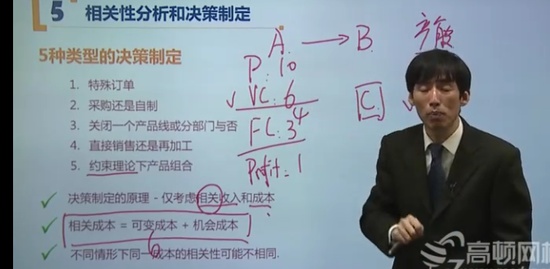 5 相关性分析和决策制定
5种类型的决策制定
1. 特殊订单
2. 采购还是自制
3. 关闭一个产品线或分部门与否
4. 直接销售还是再加工
5. 约束理论下产品组合
✓ 决策制定的原理 - 仅考虑相关收入和成本
✓ 相关成本 = 可变成本 + 机会成本
✓ 不同情形下同一成本的相关性可能不相同.
A. → B.
P: 10
✓ VC: 6
4
FC: 3
Profit = 1
C
高顿网校